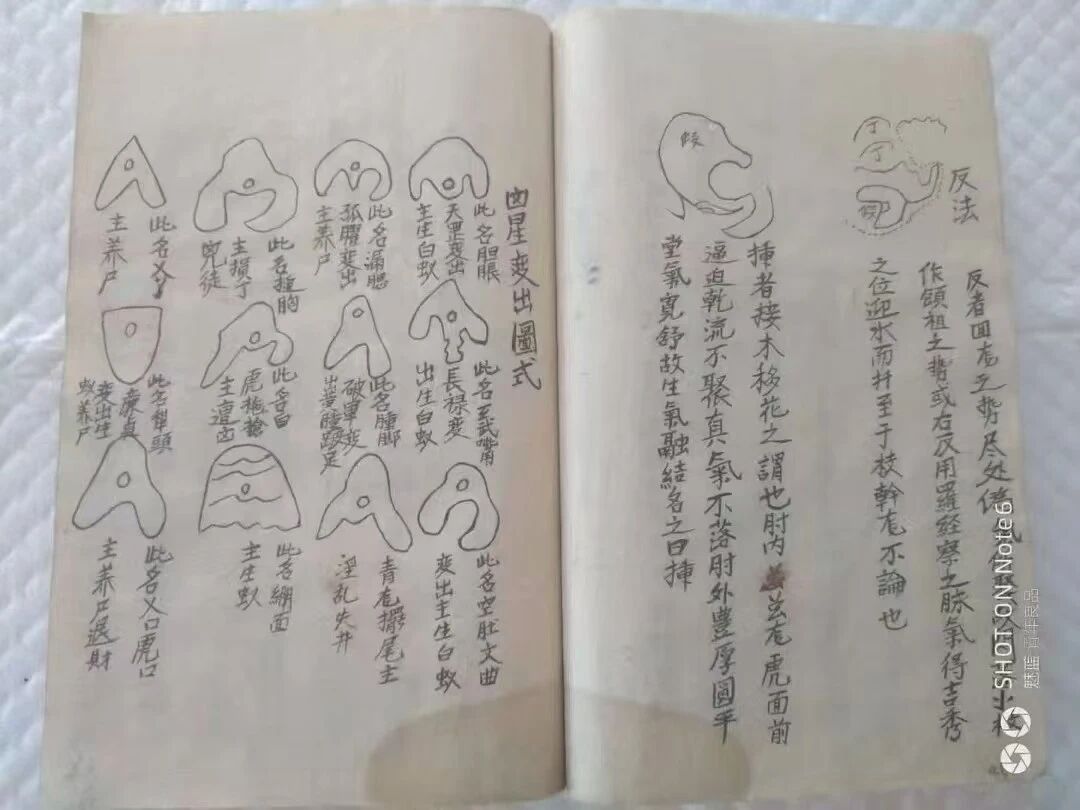 反法
反者回龙之势尽处
作領祖之勢或右反用羅經察之脉氣得吉秀
之位迎水而扦至于枝幹龙不論也
揷者接木移花之謂也肘内並龙虎面前
逼迫乾流不聚真氣不落肘外豊厚圓平
堂氣寬舒故生氣融結名之曰揷
凶星变出圖式
此名胆脹
天罡变出
主生白蚁
此名漏腮
孤曜变出
主养尸
此名搥胸
主損丁
兇徒
此名乂
主养尸
此名玄武嘴
長禄变
出生白蚁
此名腫脚
破軍变
此名
虎拖槍
主遭凶
此名犁頭
廉貞
变出生
蚁养尸
此名空肚文曲
变出主生白蚁
青龙擺尾主
淫乱失井
此名綳面
主生蚁
此名乂口虎口
主养尸退財
SHOT ON Note6